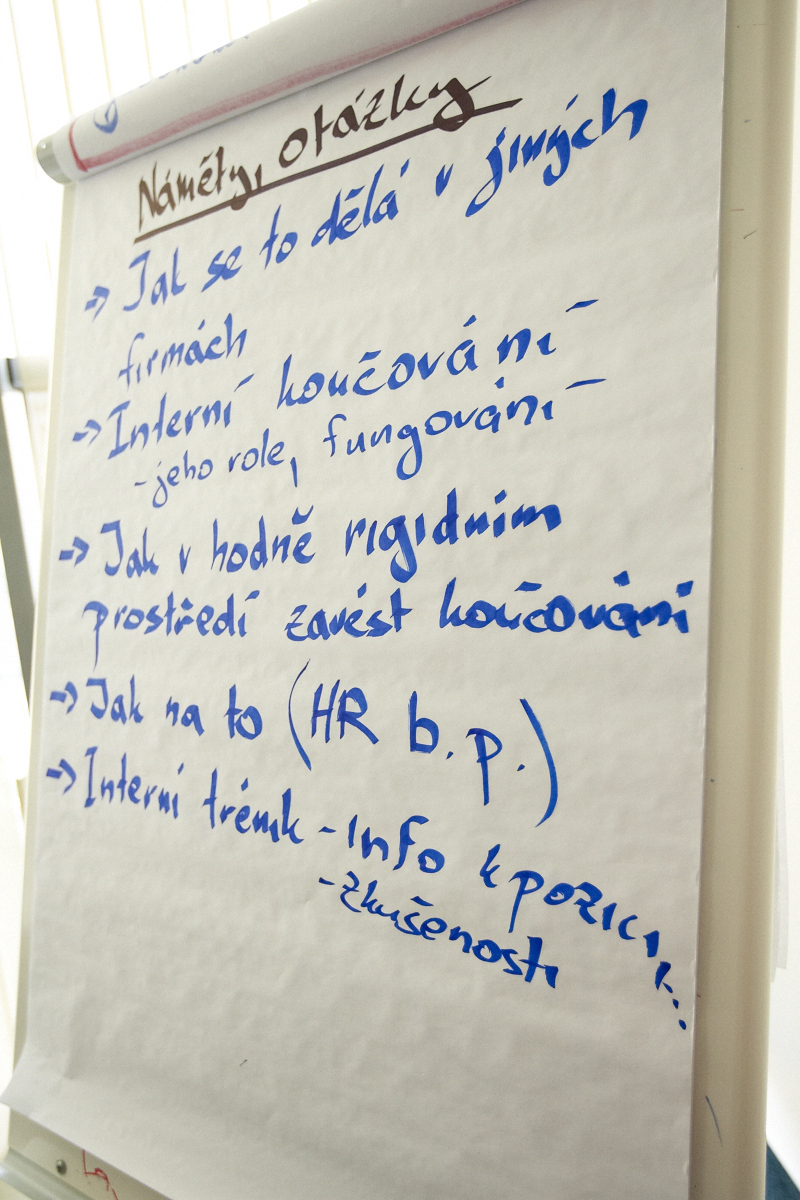 Náměty, otázky
→ Jak se to dělá v jiných
firmách
→ Interní koučování
- jeho role, fungování
→ Jak v hodně rigidním
prostředí zavést koučování
→ Jak na to (HR b.p.)
→ Interní trénik - info k pozici,
- zkušenosti